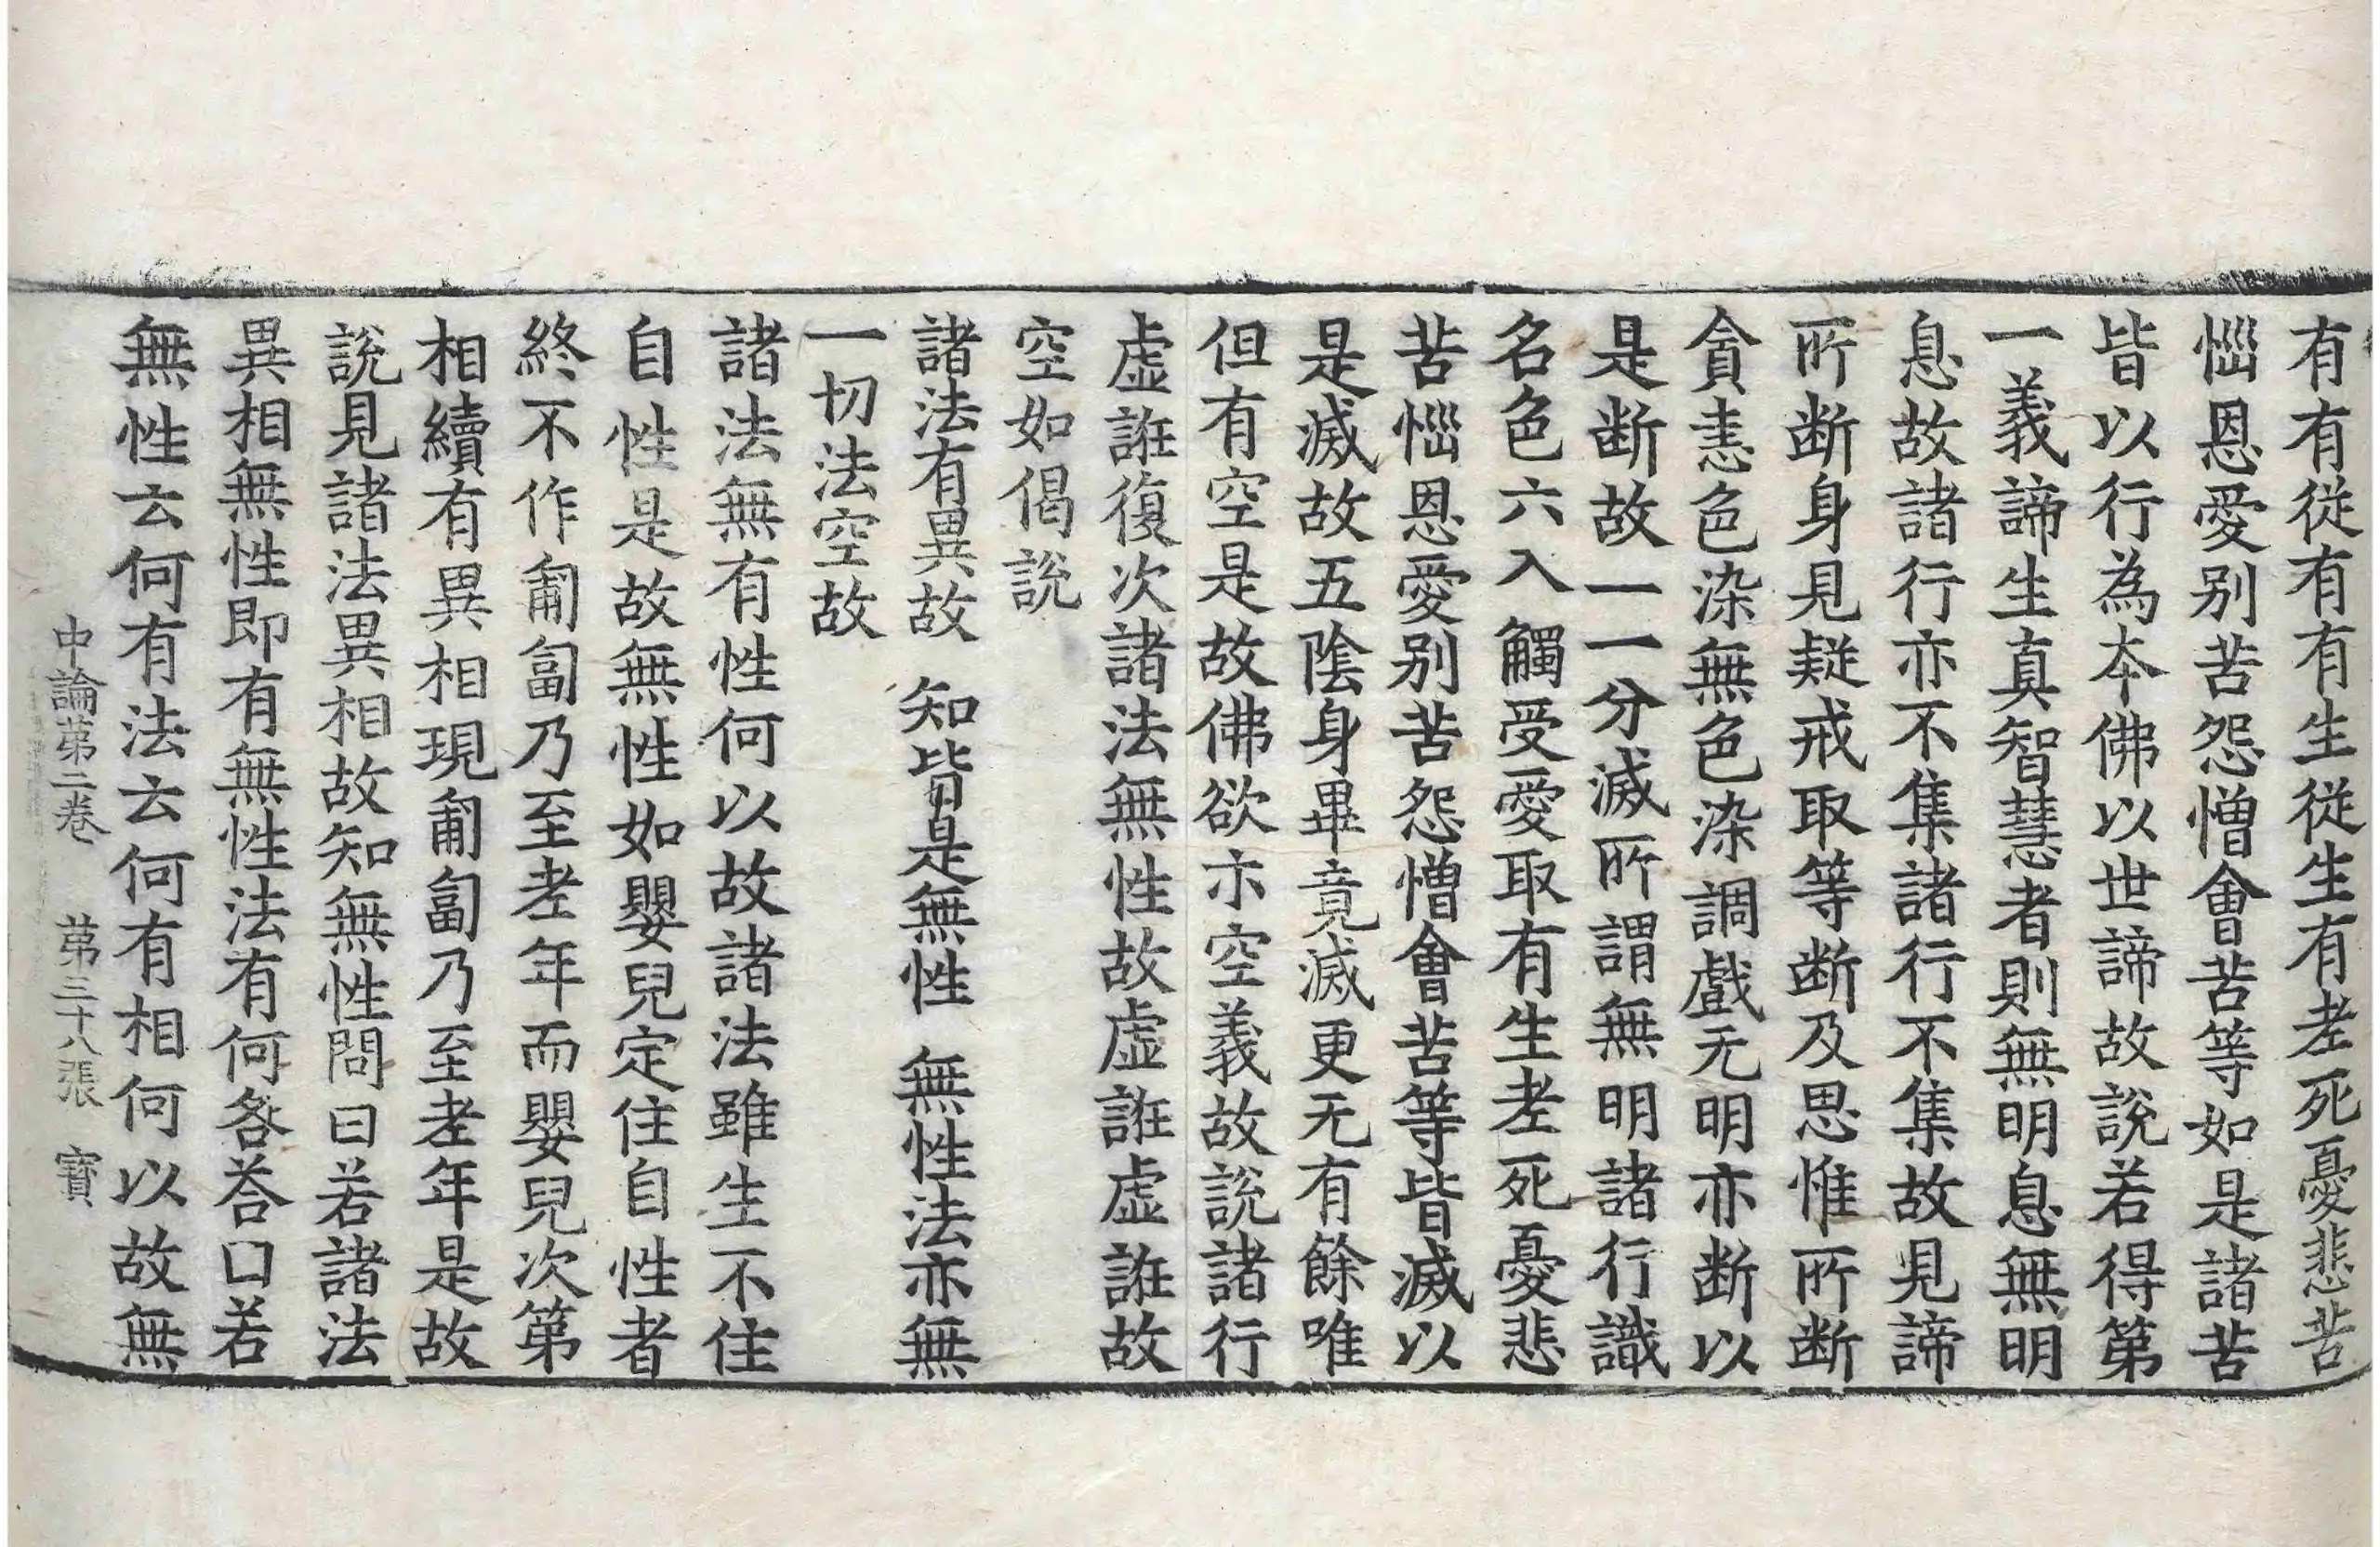 有有從有有生從生有老死憂悲苦
惱恩愛別苦怨憎會苦等如是諸苦
皆以行為本佛以世諦故說若得第
一義諦生真智慧者則無明息無明
息故諸行亦不集諸行不集故見諦
所断身見疑戒取等断及思惟所断
貪恚色染無色染調戲无明亦断以
是断故一一分滅所謂無明諸行識
名色六入觸受愛取有生老死憂悲
苦惱恩愛別苦怨憎會苦等皆滅以
是滅故五陰身畢竟滅更无有餘唯
但有空是故佛欲示空義故說諸行
虛誑復次諸法無性故虛誑虛誑故
空如偈說
諸法有異故　知皆是無性　無性法亦無
一切法空故
諸法無有性何以故諸法雖生不住
自性是故無性如嬰兒定住自性者
終不作匍匐乃至老年而嬰兒次第
相續有異相現匍匐乃至老年是故
說見諸法異相故知無性問曰若諸法
異相無性即有無性法有何咎荅曰若
無性云何有法云何有相何以故無
中論第二卷　第三十八張　寶